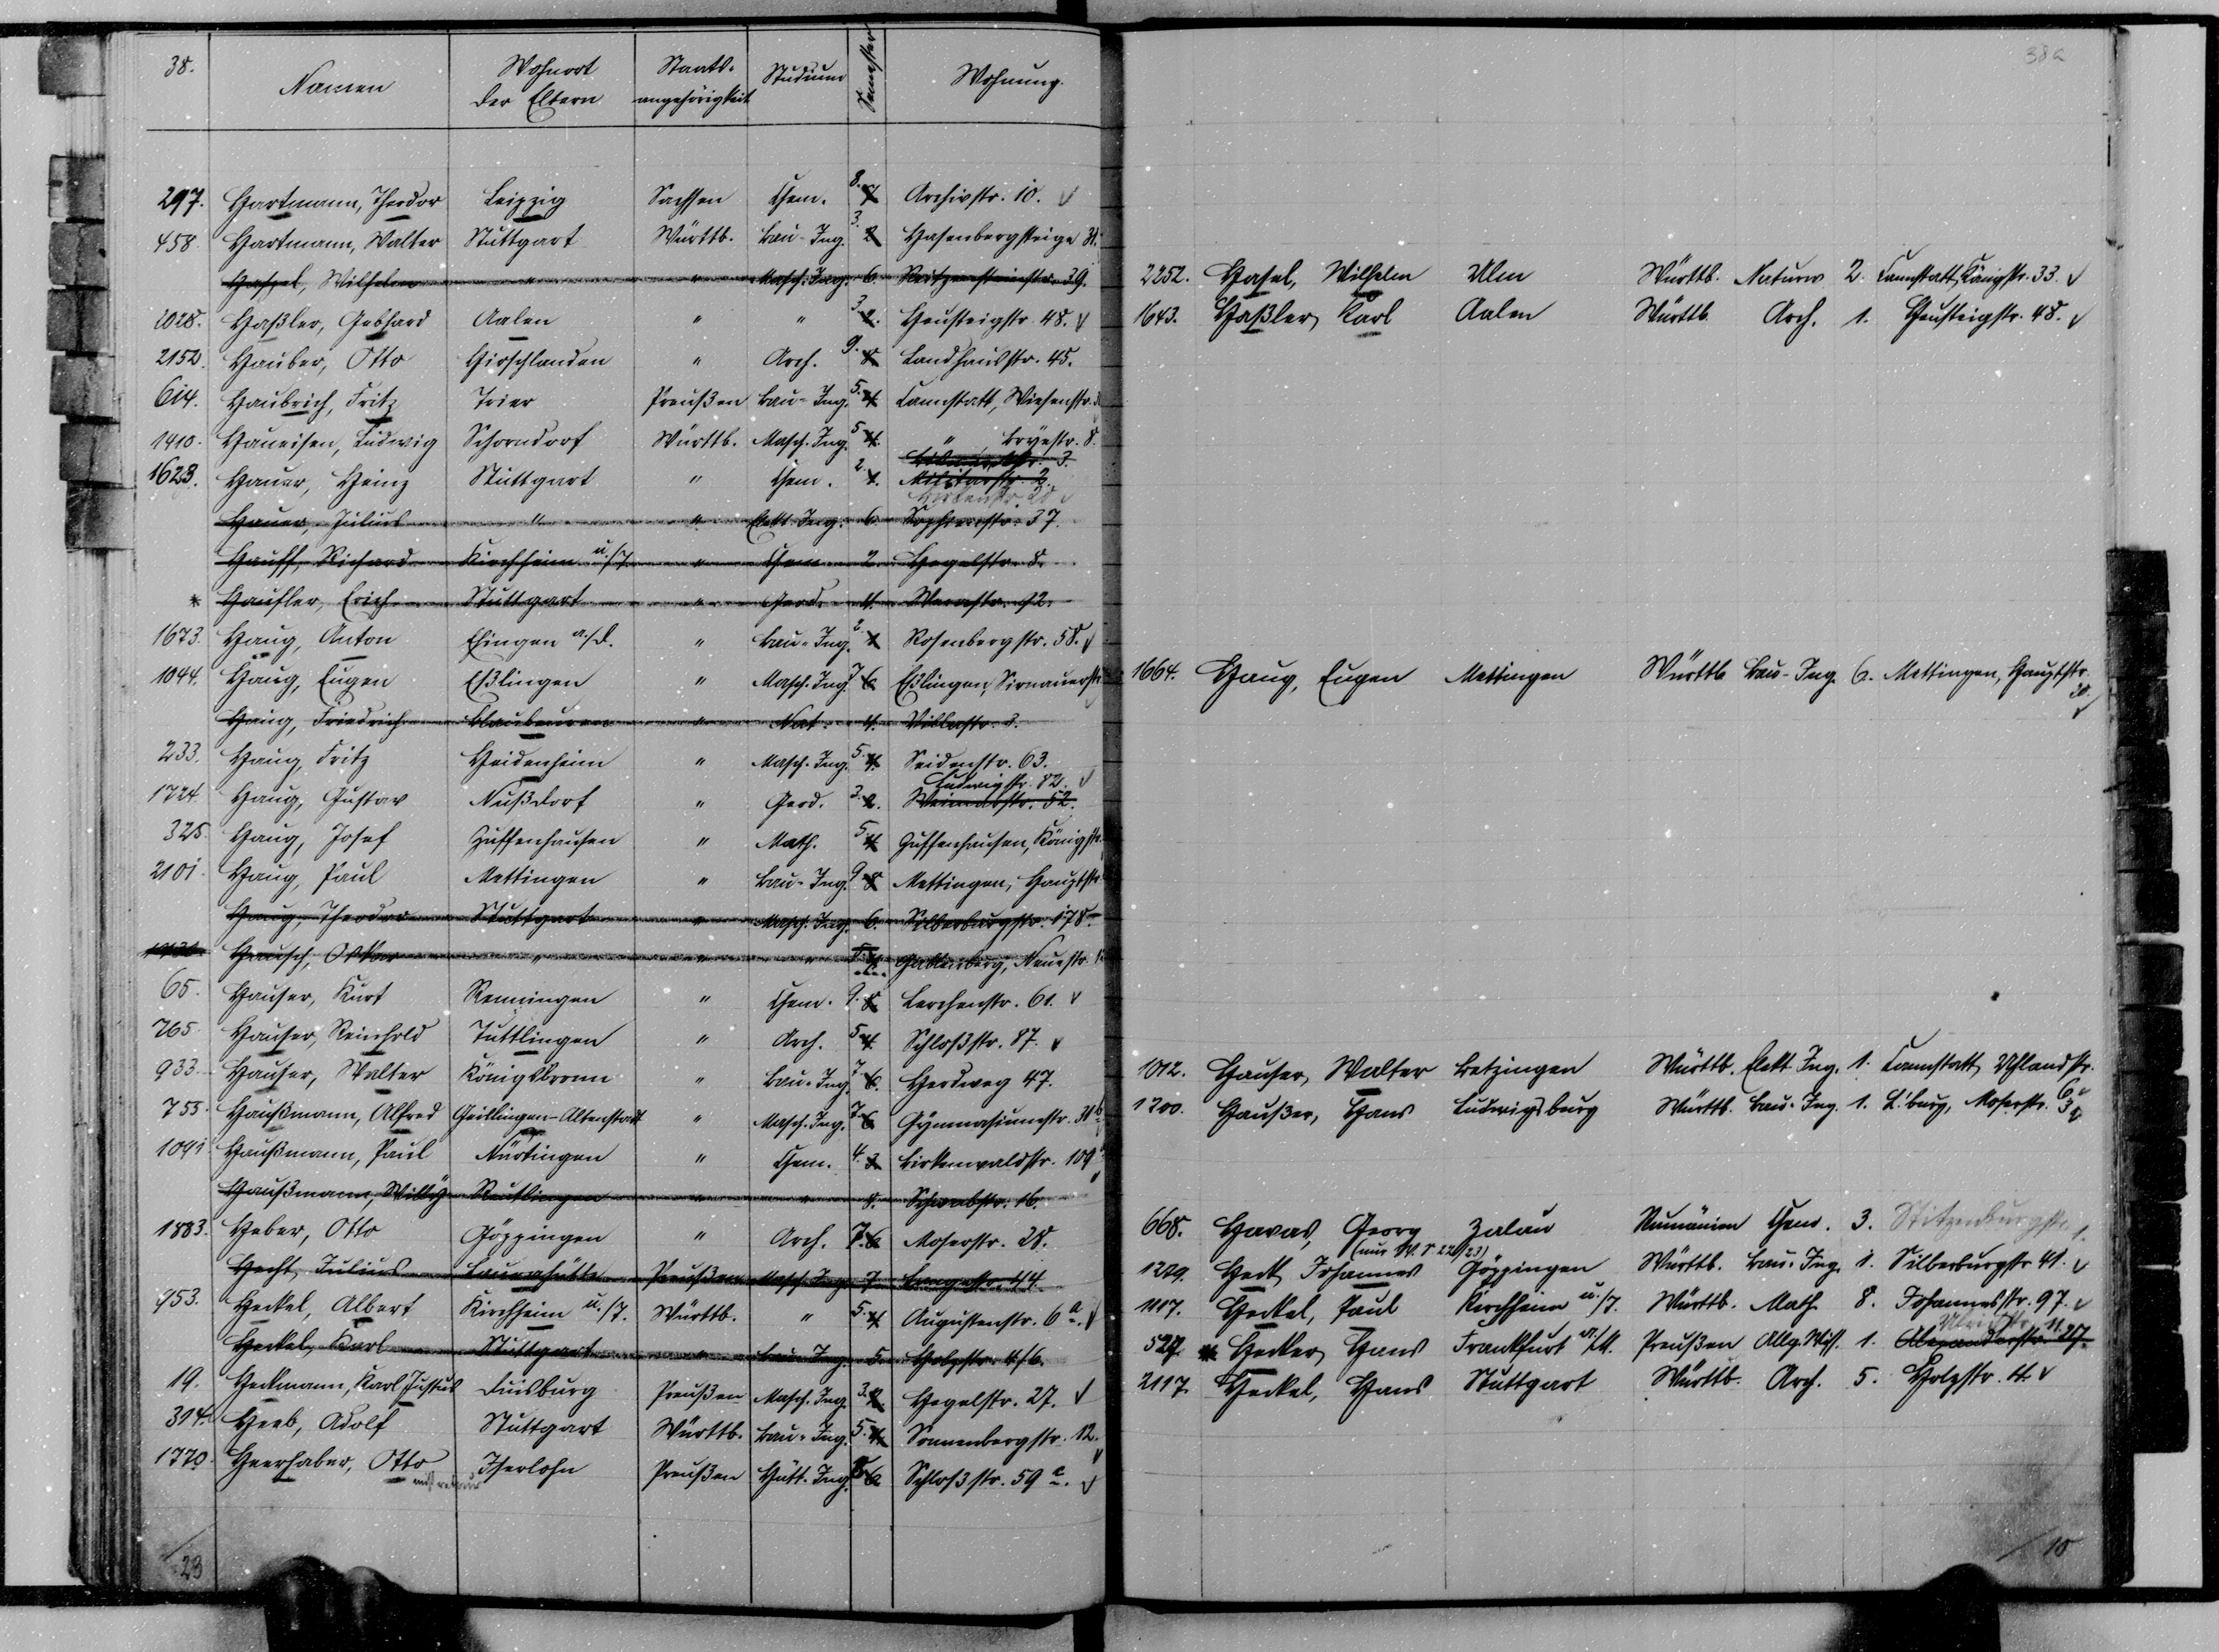 38.
Namen Wohnort der Eltern Staats-angehörigkeit Studium Semester Wohnung.
297. Hartmann, Theodor Leipzig Sachsen Chem. 8. 7 Archivstr. 10. v
458. Hartmann, Walter Stuttgart Württb. Bau-Ing. 3. 2 Hasenbergsteige 31.
Hasel, Wilhelm " " Masch. Ing. 6. Reitzensteinstr. 39.
1028. Haßler, Gebhard Aalen " " 3. 2. Heusteigstr. 48. v
2152. Hauber, Otto Hirschlanden " Arch. 9. 8 Landhausstr. 45.
614. Haubrich, Fritz Trier Preußen Bau-Ing. 5. 4 Cannstatt, Wiesenstr.
1410. Haueisen, Ludwig Schorndorf Württb. Masch. Ing. 5 4. " 8.
1623. Hauer, Heinz Stuttgart " Chem. 2. 1. Militärstr. 2.
Hauer, Julius " " Elekt. Ing. 6. Sophienstr. 37.
Hauff, Richard Kirchheim u./T. " Chem. 2. Hegelstr. 8.
* Haufler, Erich Stuttgart " Geod. 4. Werastr. 92.
1673. Haug, Anton Ehingen a./D. " Bau-Ing. 2. 1 Rosenbergstr. 58. v
1044. Haug, Eugen Eßlingen " Masch. Ing. 7 6 Eßlingen, Sirnauerstr.
Haug, Friedrich Blaubeuren " Nat. 4. Villastr. 3.
233. Haug, Fritz Heidenheim " Masch. Ing. 5. 4. Seidenstr. 63.
Ludwigstr. 82. v
1724. Haug, Gustav Nußdorf " Geod. 3. 2. Weimarstr. 52.
325. Haug, Josef Zuffenhausen " Math. 5. 4 Zuffenhausen, Königstr.
2101. Haug, Paul Mettingen " Bau-Ing. 9 8 Mettingen, Hauptstr.
Haug, Theodor Stuttgart " Masch. Ing. 6. Silberburgstr. 178.
Hausch, Oskar " " " 4. Gablenberg, Neuestr.
65. Hauser, Kurt Renningen " Chem. 9. 8. Lerchenstr. 61. v
765. Hauser, Reinhold Tuttlingen " Arch. 5 4. Schloßstr. 87. v
933. Hauser, Walter Königsbronn " Bau-Ing. 7 6. Herdweg 47.
755. Haußmann, Alfred Geislingen-Altenstadt " Masch. Ing. 7 6. Gymnasiumstr. 31
1041 Haußmann, Paul Nürtingen " Chem. 4. 3. Birkenwaldstr. 109
Haußmann, Willy Reutlingen " " 8. Schwabstr. 16.
1883. Heber, Otto Göppingen " Arch. 7. 6. Moserstr. 28.
Hecht, Julius Laurahütte Preußen Masch. Ing. 7 Langestr. 44.
953. Heckel, Albert Kirchheim u./T. Württb. " 5. 4 Augustenstr. 6 a. v
Heckel, Karl Stuttgart " Bau-Ing. 5. Holzstr. 4/6.
19. Heckmann, Karl Justus Duisburg Preußen Masch. Ing. 3. 2. Hegelstr. 27. v
314. Heeb, Adolf Stuttgart Württb. Bau-Ing. 5. 4. Sonnenbergstr. 12.
1770. Heerhaber, Otto Iserlohn Preußen Hütt. Ing. 6 Schloßstr. 59 c. v
23
38a
2252. Hasel, Wilhelm Ulm Württb. Naturw. 2. Cannstatt, Königstr. 33 v
1643. Haßler, Karl Aalen Württb. Arch. 1. Heusteigstr. 48. v
1664. Haug, Eugen Mettingen Württb Bau-Ing. 6. Mettingen, Hauptstr.
1012. Hauser, Walter Betzingen Württb. Elekt. Ing. 1. Cannstatt, Uhlandstr.
1700. Haußer, Hans Ludwigsburg Württb. Bau-Ing. 1. L'burg, Moserstr.
668. Havas, Georg Zalau Rumänien Chem. 3. Stitzenburgstr.
(nur W. S 22/23)
1229. Heck, Johannes Göppingen Württb. Bau-Ing. 1. Silberburgstr. 41. v
1117. Heckel, Paul Kirchheim u./T. Württb. Math. 8. Johannesstr. 97. v
527. * Hecker, Hans Frankfurt a./M. Preußen Allg. Wiss. 1. Alexanderstr. 27.
2117. Heckel, Hans Stuttgart Württb. Arch. 5. Holzstr. 4. v
10